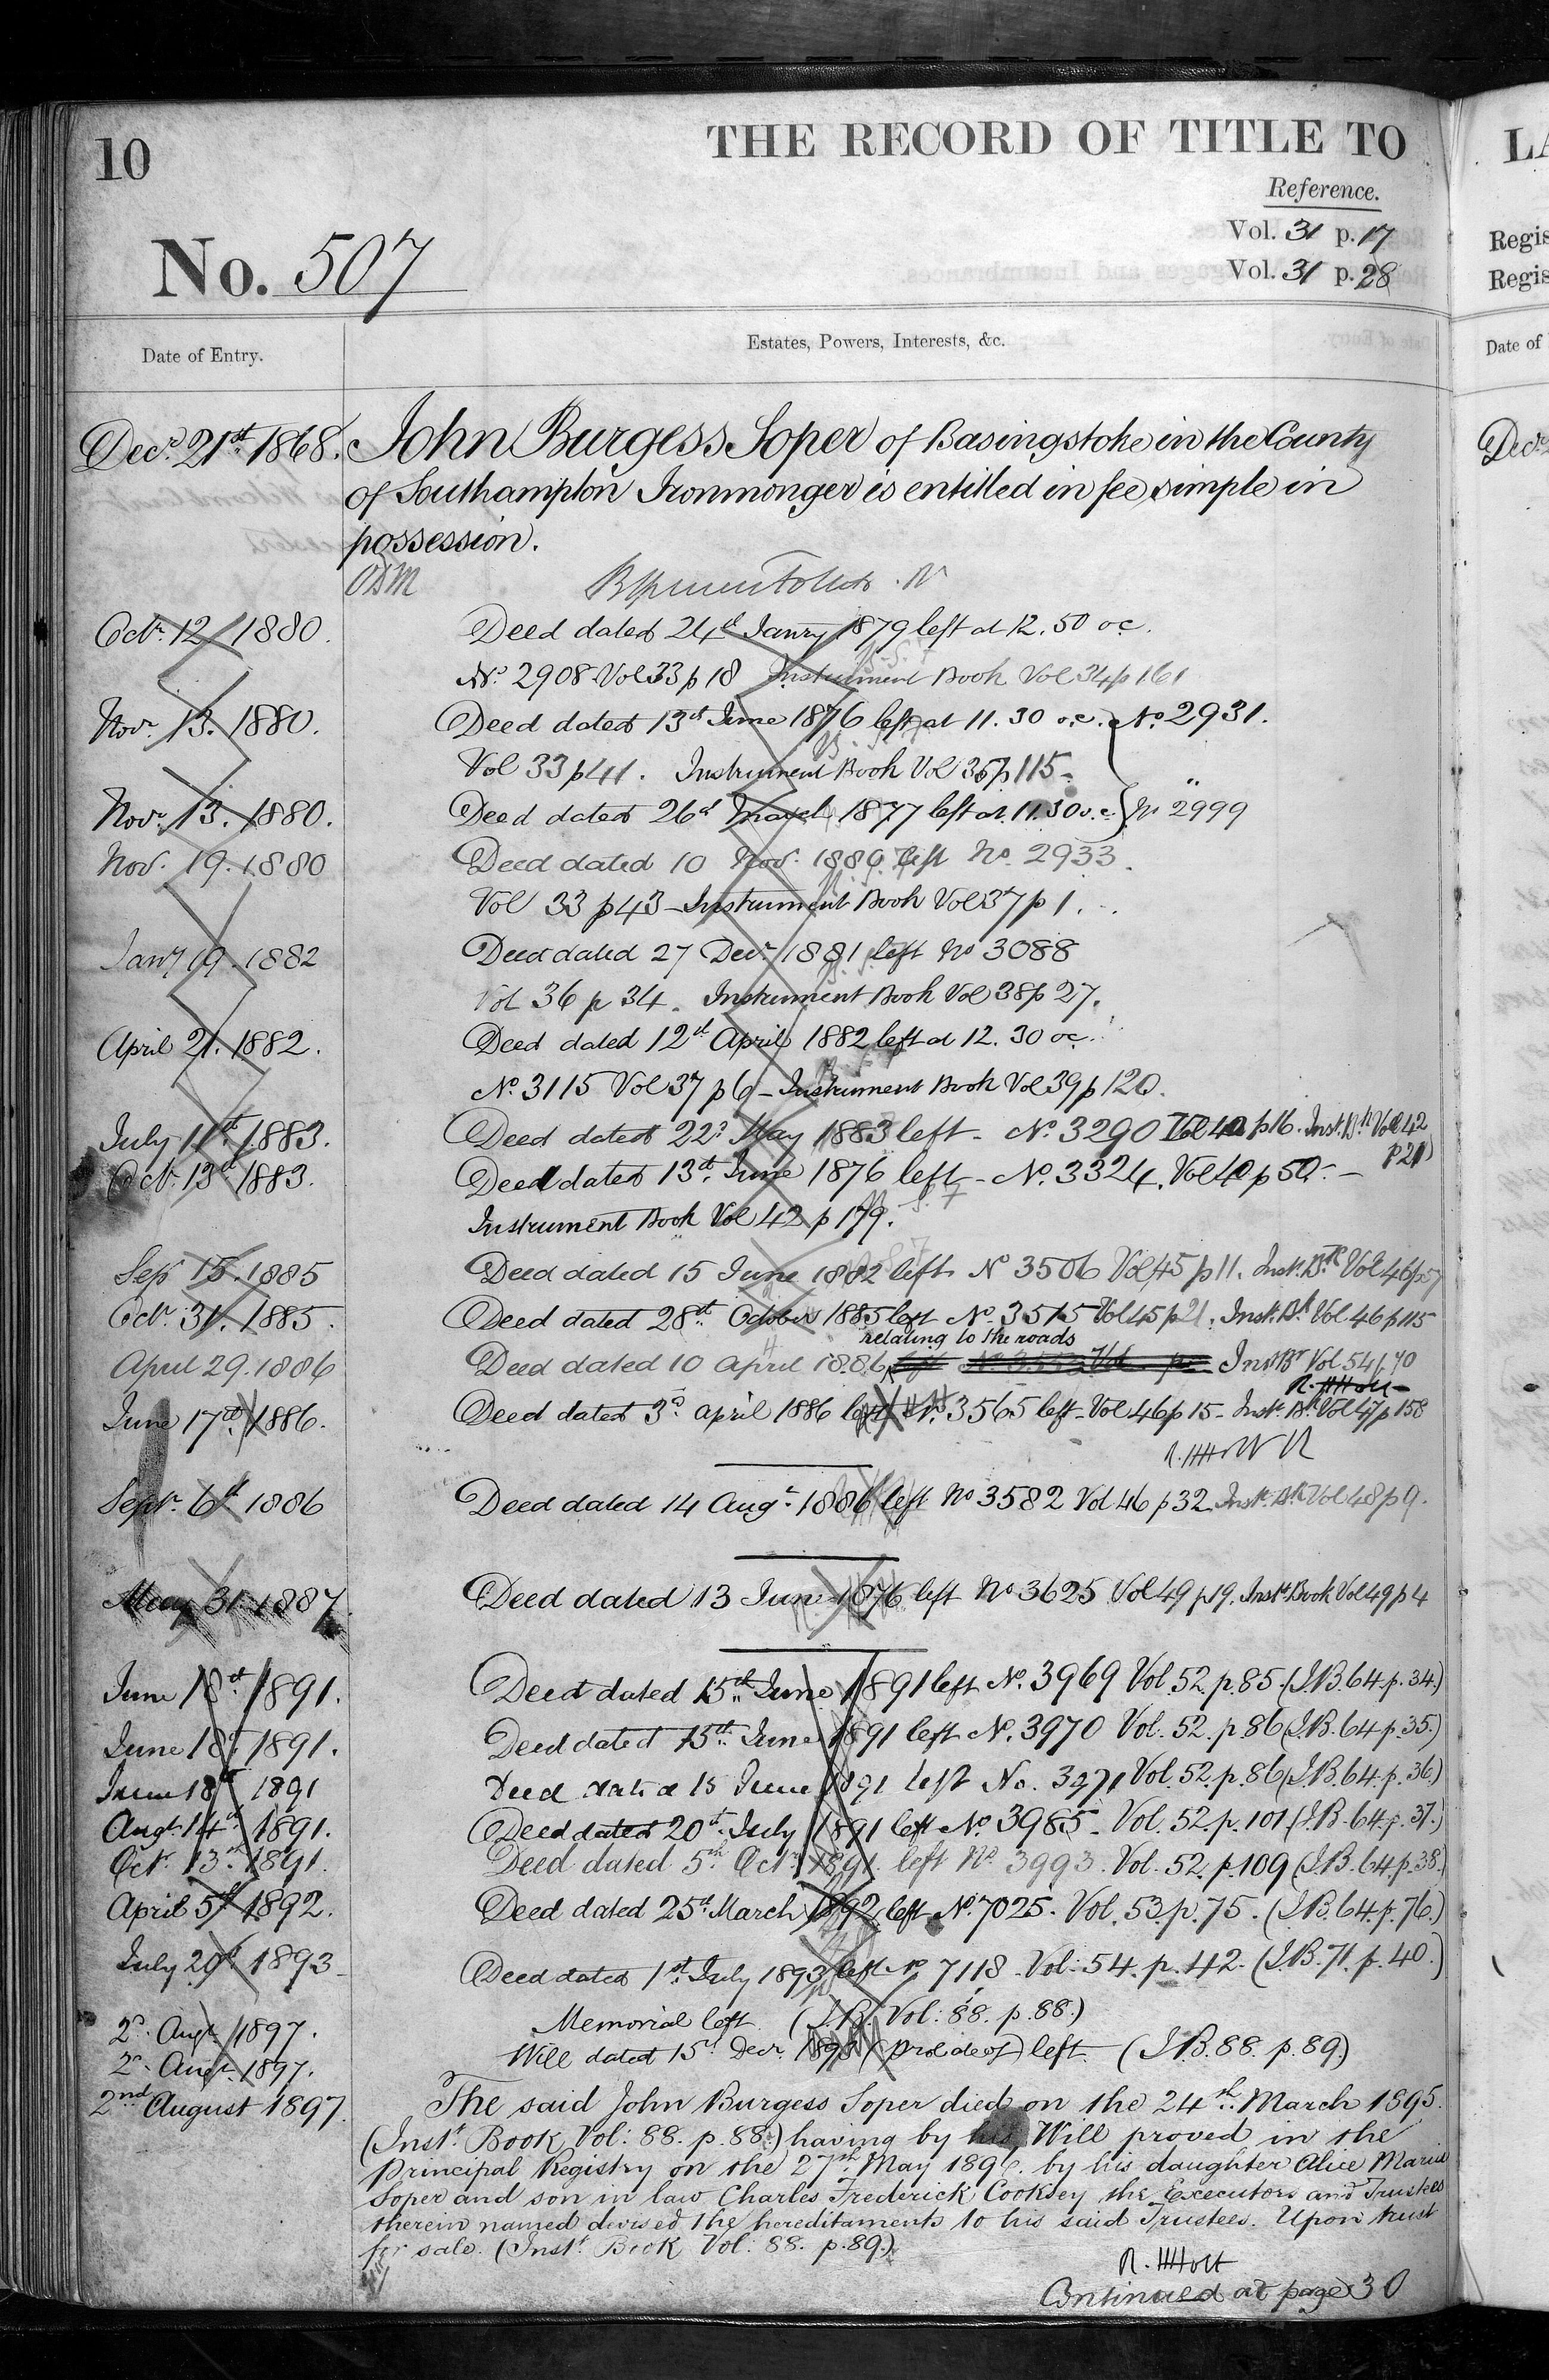 10
THE RECORD OF TITLE TO
Reference.
Vol. 31 p. 17
Vol. 31 p. 28
No. 507
Date of Entry.
Estates, Powers, Interests, &c.
Decr. 21st 1868. John Burgess Soper of Basingstoke in the County
of Southampton Ironmonger is entitled in fee simple in
possession.
Octr. 12 / 1880. Deed dated 24th Janry 1879 left at 12.50 oc.
No. 2908 Vol 33 p 18 Instrument Book Vol 34 p 161
Novr. 13. 1880. Deed dated 13th June 1876 left at 11.30 o.c. No. 2931.
Vol 33 p 41. Instrument Book Vol 35 p 115 -
Novr. 13. 1880. Deed dated 26th March 1877 left at 11.30 o.c. No 2999
Nov. 19. 1880 Deed dated 10 Nov. 1880 left No. 2933.
Vol 33 p 43 - Instrument Book Vol 37 p 1.
Jany 19. 1882 Deed dated 27 Decr 1881 left No 3088
Vol 36 p 34. Instrument Book Vol 38 p 27.
April 21. 1882. Deed dated 12th April 1882 left at 12.30 oc.
No. 3115 Vol 37 p 6 - Instrument Book Vol 39 p 120.
July 11th 1883. Deed dated 22d May 1883 left - No. 3290 Vol 40 p 16. Inst. Bk Vol 42
p 21)
Oct. 13th 1883. Deed dated 13th June 1876 left - No. 3324. Vol 40 p 50 -
Instrument Book Vol 42 p 179.
Sep 15. 1885 Deed dated 15 June 1882 left No 3506 Vol 45 p 11. Inst. Bk Vol 46 p 57
Octr. 31. 1885. Deed dated 28th October 1885 left No. 3515 Vol 45 p 21. Inst. Bk Vol 46 p 115
relating to the roads
April 29. 1886 Deed dated 10 April 1886 Inst Bk Vol 54 p. 70
June 17th 1886. Deed dated 3d April 1886 No. 3565 left - Vol 46 p 15 - Inst. Bk Vol 47 p 158
Septr. 6th 1886 Deed dated 14 Augt. 1886 left No 3582 Vol 46 p 32 Inst. Bk Vol 48 p 9.
May 31. 1887. Deed dated 13 June 1876 left No 3625 Vol 49 p 19. Inst. Book Vol 49 p 4
June 18th 1891. Deed dated 15th June 1891 left No. 3969 Vol. 52. p. 85. (I.B. 64. p. 34.)
June 18th 1891. Deed dated 15th June 1891 left No. 3970 Vol. 52. p. 86 (I.B. 64 p. 35.)
June 18th 1891 Deed dated 15 June 1891 left No. 3971 Vol. 52. p. 86 (I.B. 64. p. 36.)
Augt. 14th 1891. Deed dated 20th July 1891 left No. 3985 - Vol. 52. p. 101 (I.B. 64. p. 37.)
Octr. 13th 1891. Deed dated 5th Octr. 1891. left No. 3993. Vol. 52. p. 109 (I.B. 64. p. 38.)
April 5th 1892. Deed dated 25th March 1892 left No. 7025. Vol. 53. p. 75. (I.B. 64. p. 76.)
July 20th 1893 Deed dated 1st July 1893 left No 7118. Vol: 54. p. 42. (I.B. 71. p. 40.)
2d. Augt. 1897. Memorial left (I.B. Vol: 88. p. 88.)
2d. Augt. 1897. Will dated 15th Decr. (probate of) left. (I.B. 88. p. 89.)
2nd August 1897. The said John Burgess Soper died on the 24th March 1895.
(Inst. Book Vol: 88. p. 88.) having by his Will proved in the
Principal Registry on the 27th May by his daughter Alice Maria
Soper and son in law Charles Frederick Cooksey the Executors and Trustees
therein named devised the hereditaments to his said Trustees. Upon trust
for sale. (Inst. Book Vol: 88. p. 89.)
R. H Holt
Continued at page 30